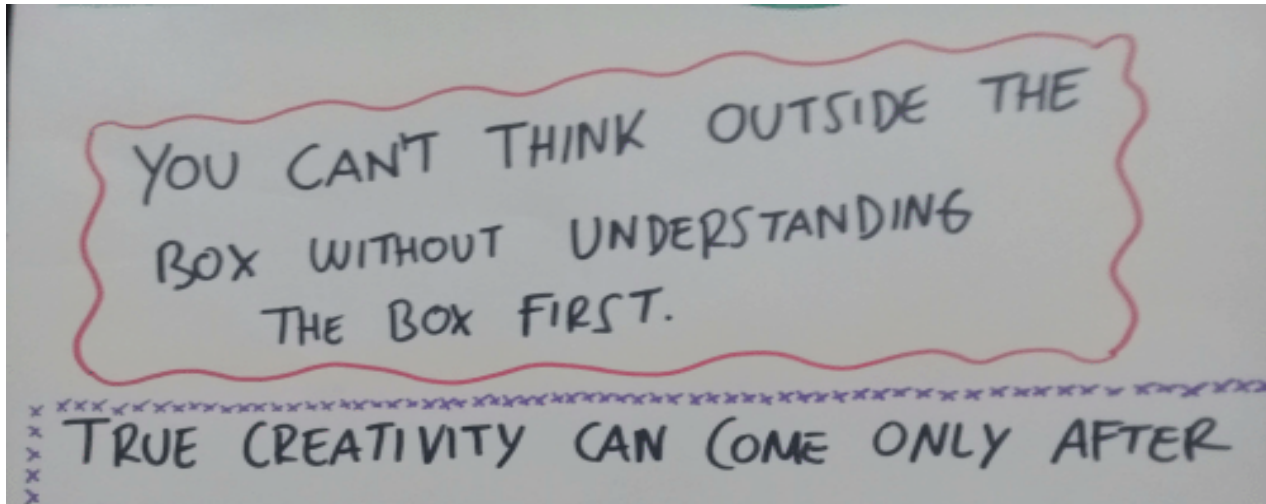 YOU CAN'T THINK OUTSIDE THE
BOX WITHOUT UNDERSTANDING
THE BOX FIRST.
TRUE CREATIVITY CAN COME ONLY AFTER